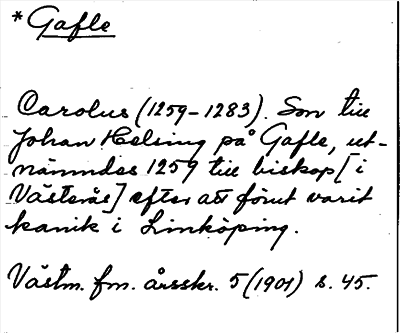 * Gafle
Carolus (1259-1283). Son till
Johan Helsing på Gafle, ut-
nämndes 1259 till biskop [i
Västerås] efter att förut varit
kanik i Linköping.
Västm. fm. årsskr. 5 (1901) s. 45.